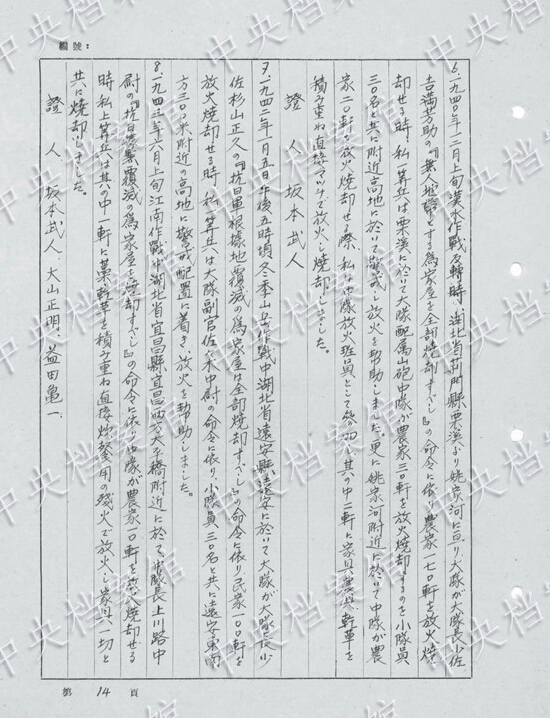 編號：
6. 一九四〇年十二月上旬漢水作戰反轉時、湖北省荊門縣栗溪より姚家河に亘り大隊が大隊長少佐
吉満芳助の『無人地帶とする為家屋を全部焼却すべし』の命令に依り農家一七〇軒を放火焼
却せる時、私一等兵は栗溪に於いて大隊配属山砲中隊が農家三〇軒を放火焼却するのを小隊員
三〇名と共に附近高地に於いて警戒し放火を幇助しました。更に姚家河附近に於いて中隊が農
家二〇軒を放火焼却せる際、私は中隊放火班員として其の中二軒に家具、農具、乾草を
積み重ね直接マッチで放火し焼却しました。
證人、坂本武人
7. 一九四二年一月五日午後五時頃冬季山岳作戰中湖北省遠安縣遠安に於いて大隊が大隊長少
佐杉山正久の『抗日軍根據地覆滅の為家屋は全部焼却すべし』の命令に依り民家一〇〇軒を
放火焼却せる時、私一等兵は大隊副官佐々木中尉の命令に依り小隊員三〇名と共に遠安東南
方三〇〇米附近の高地に警戒配置に着き、放火を幇助しました。
8. 一九四三年六月上旬江南作戰中湖北省宜昌縣宜昌西方大子橋附近に於て中隊長上川路中
尉の『抗日の巣窟覆滅の為家屋を焼却すべし』の命令に依り中隊が農家一〇軒を放火焼却せる
時私上等兵は其の中一軒に藁、乾草を積み重ね直接炊爨用の残火で放火し家具一切と
共に焼却しました。
證人、坂本武人、大山正明、益田亀一、
第 14 頁
中央档案馆